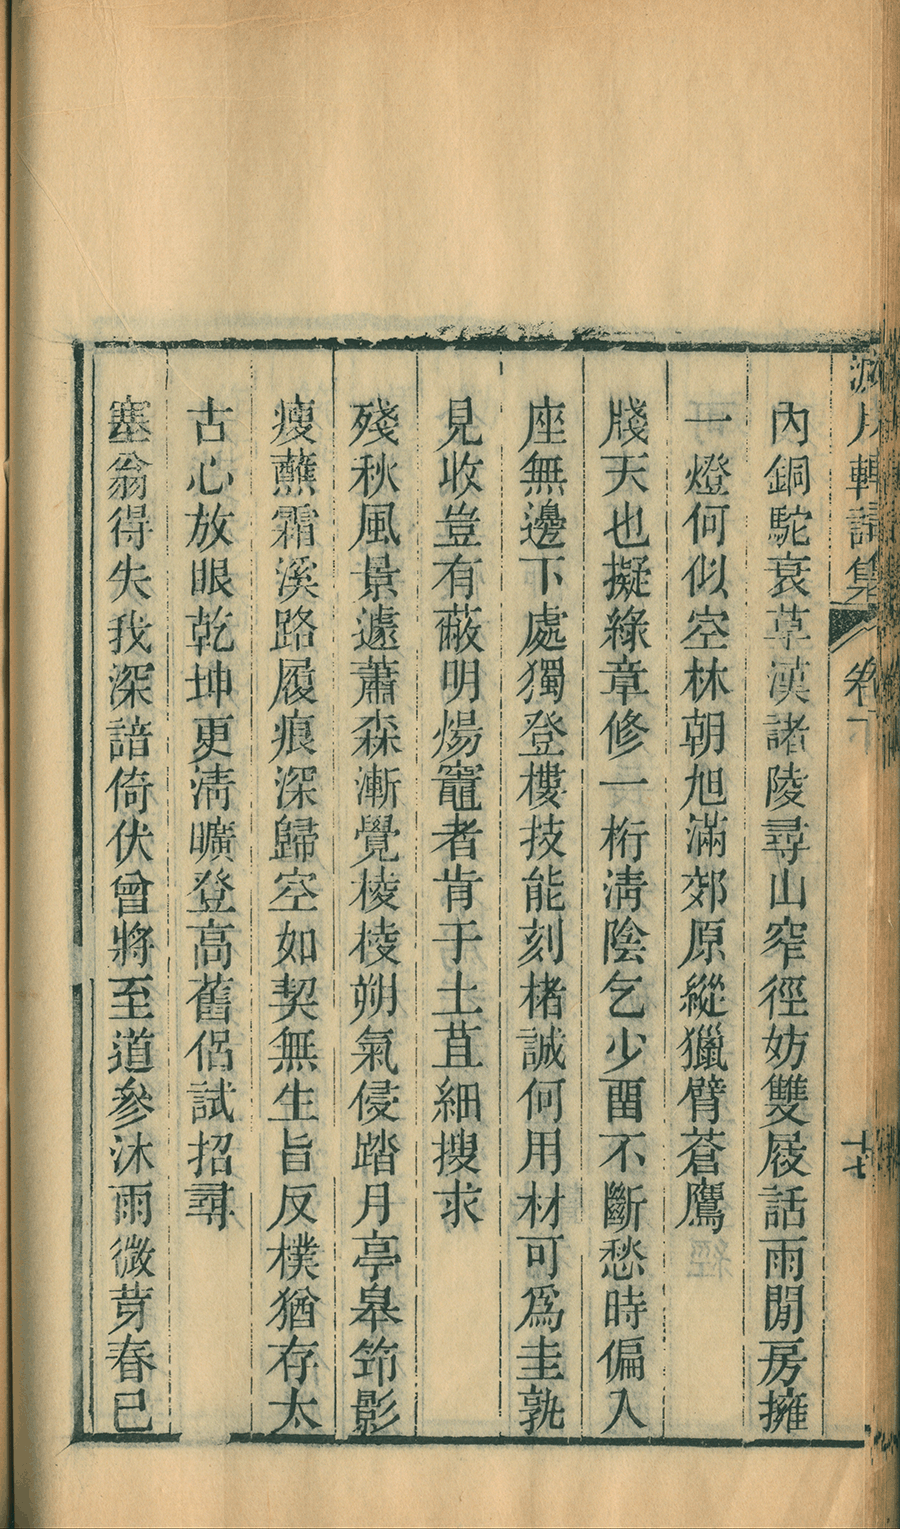 月輯詩集 卷下 十七
內銅駝衰草漢諸陵尋山窄徑妨雙屐話雨閒房擁
一燈何似空林朝旭滿郊原縱獵臂蒼鷹
牋天也擬綠章修一桁淸陰乞少畱不斷愁時偏入
座無邊下處獨登樓技能刻楮誠何用材可爲圭孰
見收豈有蔽明煬竈者肯于土苴細搜求
殘秋風景遠蕭森漸覺棱棱朔氣侵踏月亭皋筇影
瘦蘸霜溪路履痕深歸空如契無生旨反樸猶存太
古心放眼乾坤更淸曠登高舊侶試招尋
塞翁得失我深諳倚伏曾將至道參沐雨微芽春已